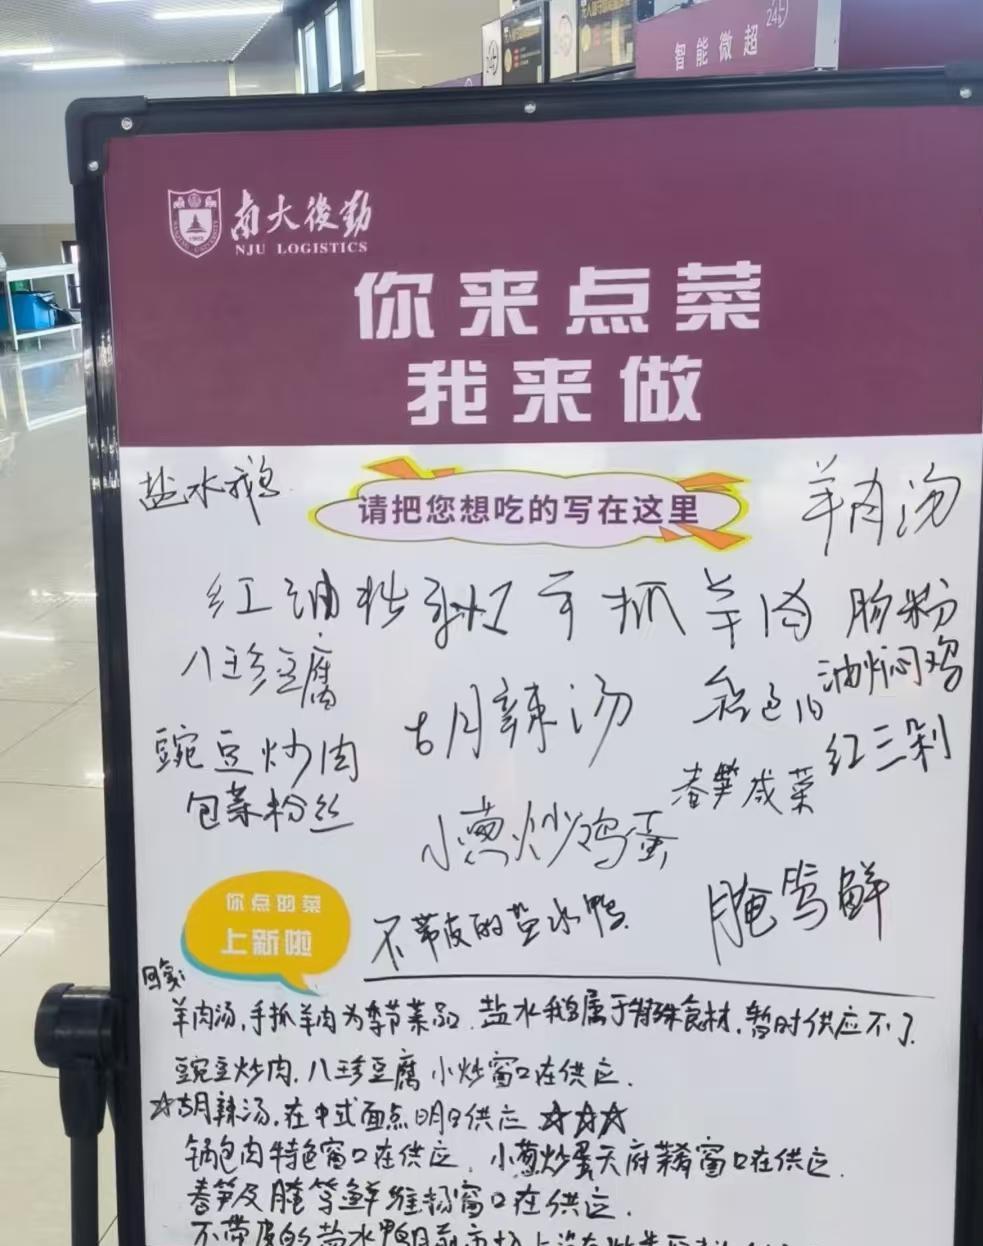 24h
智能微超
南大後勤
NJU LOGISTICS
你来点菜
我来做
盐水鹅
请把您想吃的写在这里
羊肉汤
红油
手抓羊肉
肠粉
八珍豆腐
油焖鸡
胡辣汤
豌豆炒肉
红三剁
包菜粉丝
春笋咸菜
小葱炒鸡蛋
你点的菜
上新啦
不带皮的盐水鸭
腌笃鲜
回复:
羊肉汤,手抓羊肉为季节菜品.盐水鹅属于特殊食材,暂时供应不了.
豌豆炒肉,八珍豆腐 小炒窗口在供应.
☆胡辣汤,在中式面点明日供应 ☆☆☆
锅包肉特色窗口在供应.小葱炒蛋天府菜肴窗口在供应.
春笋及腌笃鲜维扬窗口在供应.
不带皮的盐水鸭目前市场上没有